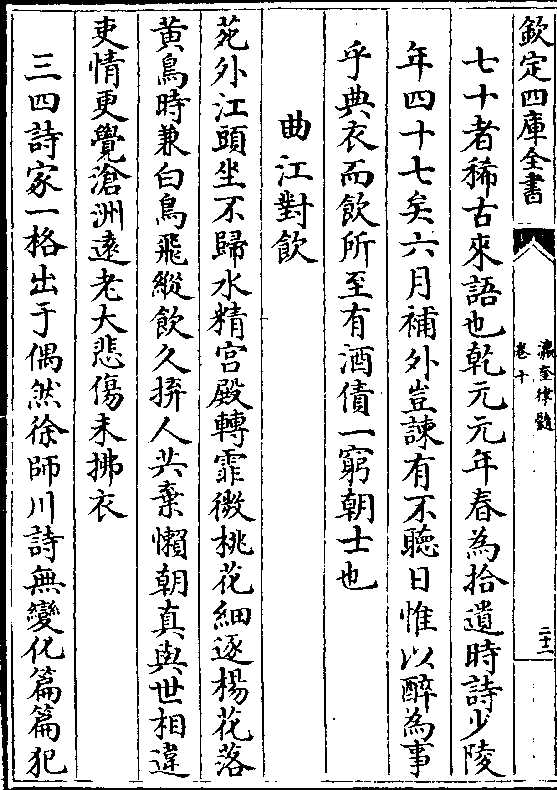 欽定四庫全書
瀛奎律髓
卷十
二十二
七十者稀古來語也乾元元年春為拾遺時詩少陵
年四十七矣六月補外豈諫有不聽日惟以醉為事
乎典衣而飲所至有酒債一窮朝士也
曲江對飲
苑外江頭坐不歸水精宫殿轉霏微桃花細逐楊花落
黄鳥時兼白鳥飛縱飲久拚人共棄懶朝真與世相違
吏情更覺滄洲遠老大悲傷未拂衣
三四詩家一格出于偶然徐師川詩無變化篇篇犯